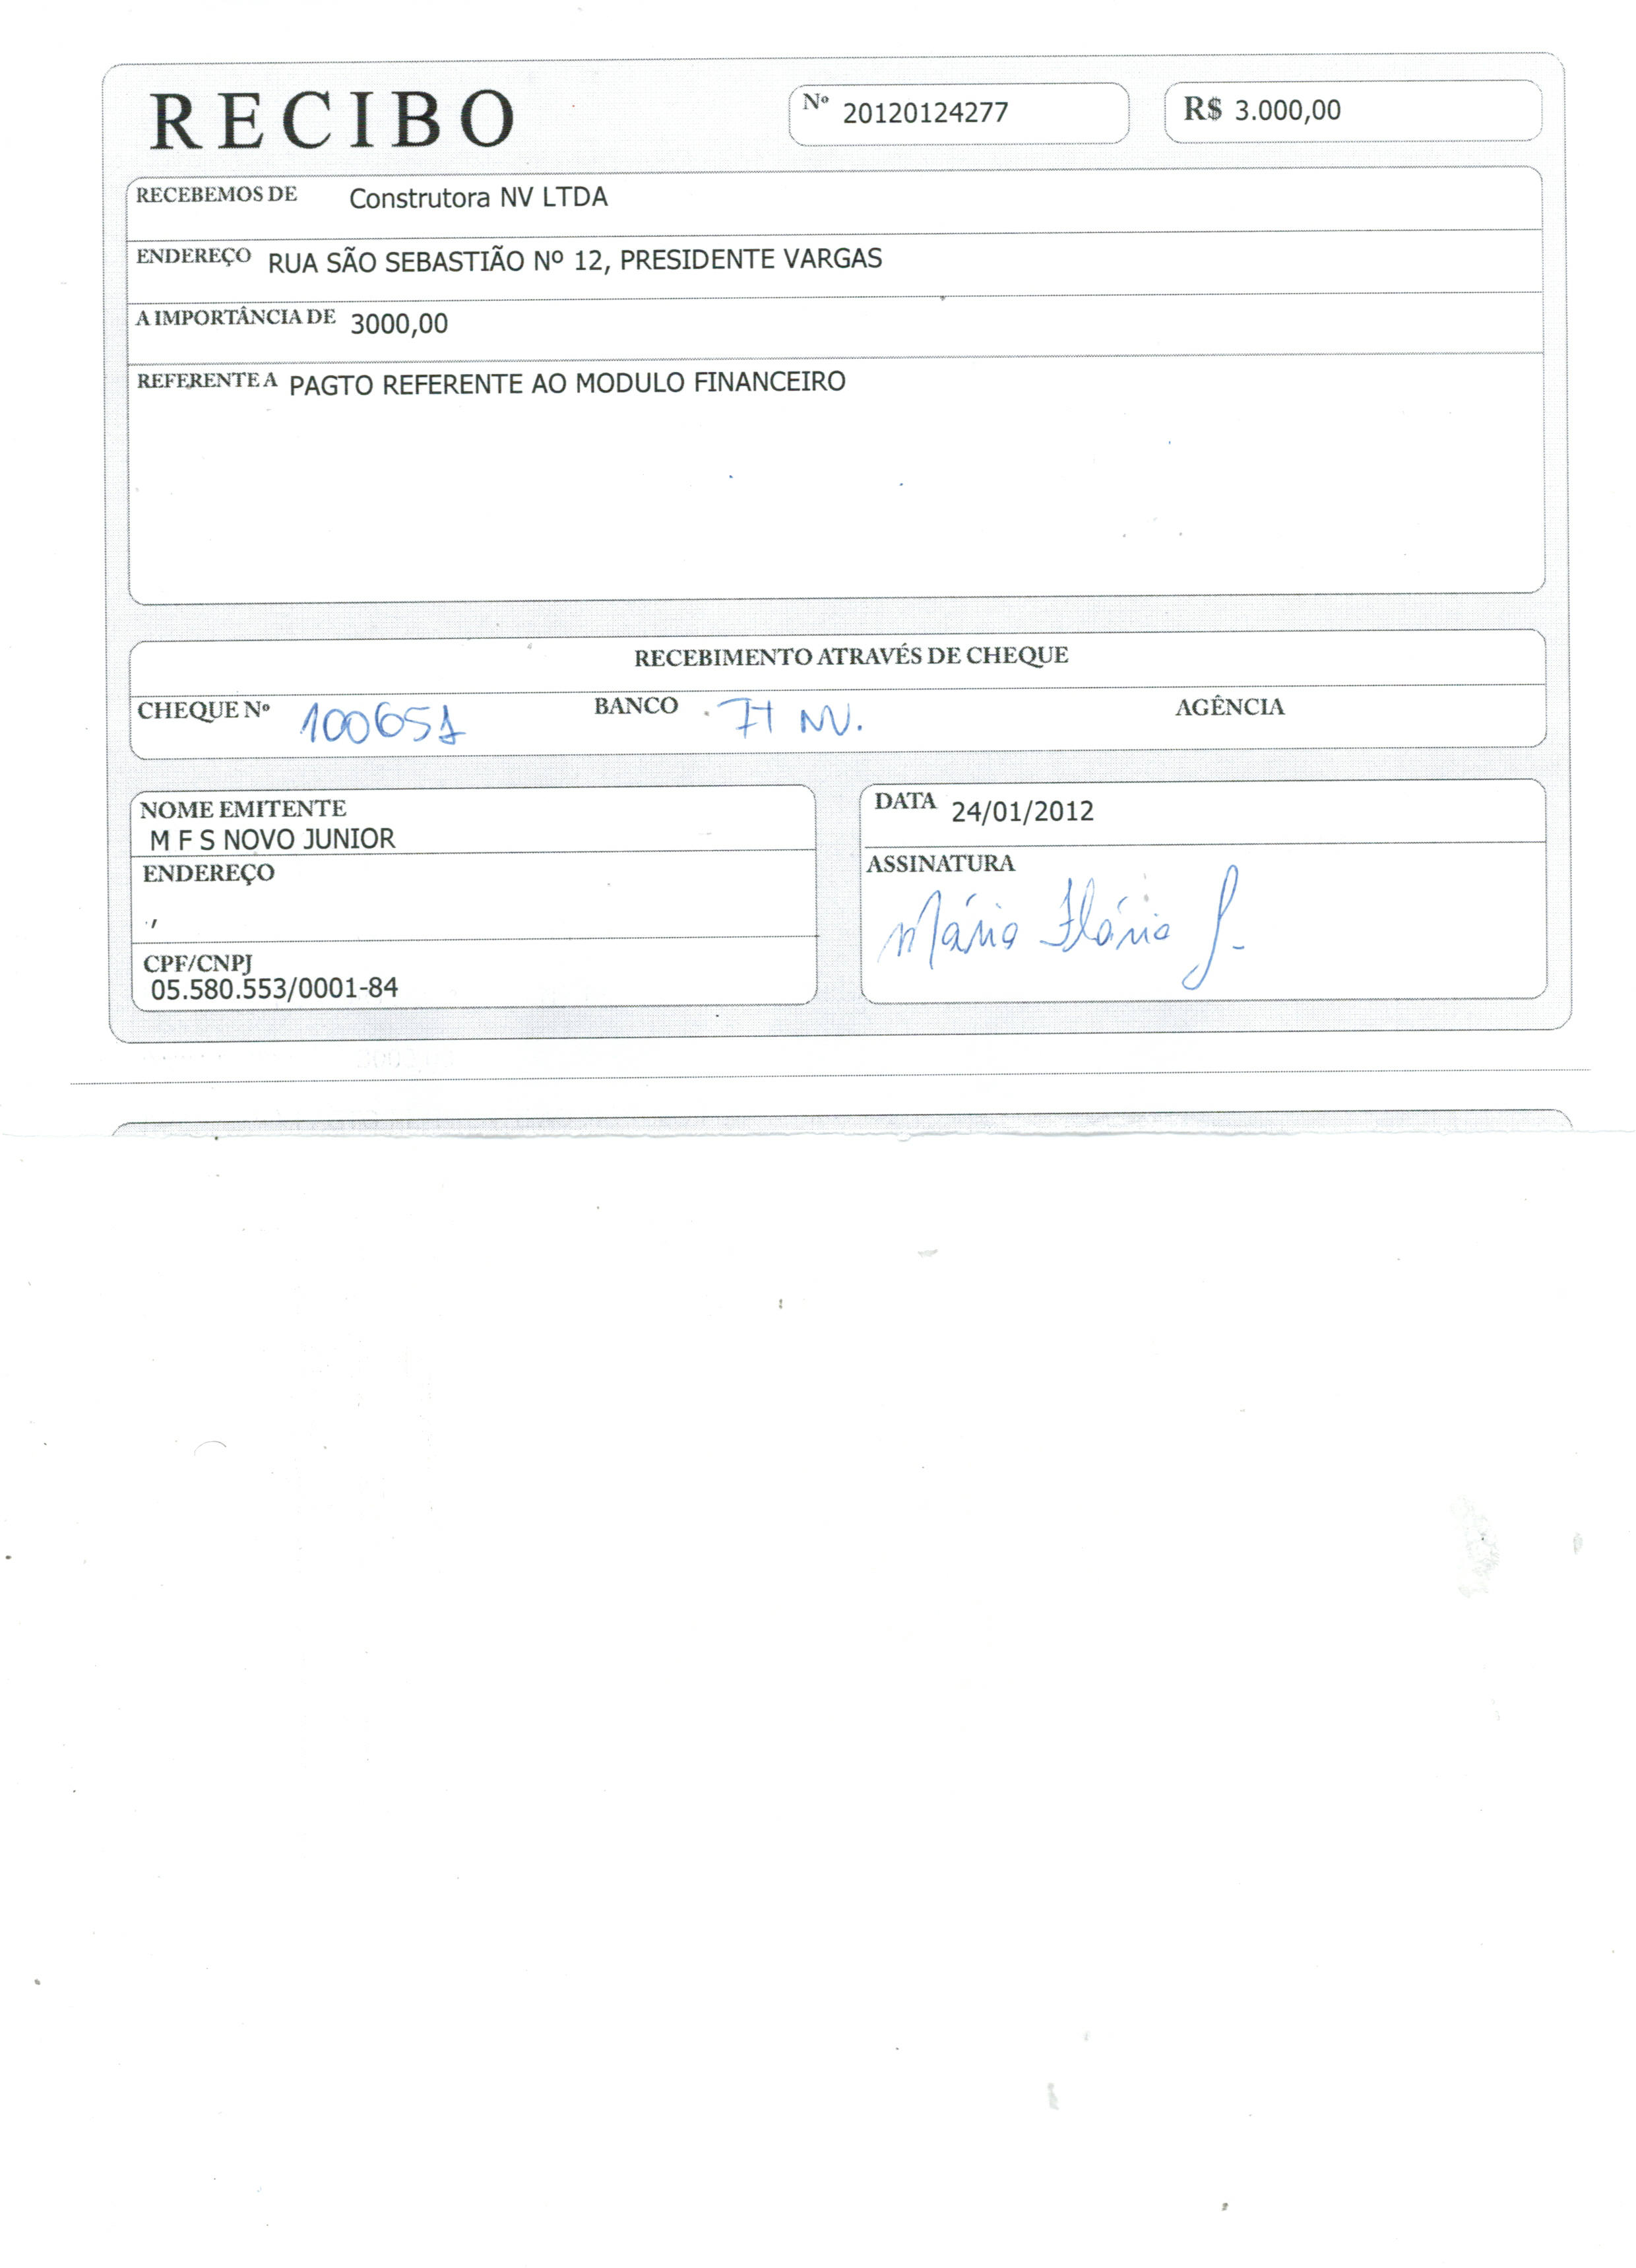 RECIBO
Nº 20120124277
R$ 3.000,00
RECEBEMOS DE Construtora NV LTDA
ENDEREÇO RUA SÃO SEBASTIÃO Nº 12, PRESIDENTE VARGAS
A IMPORTÂNCIA DE 3000,00
REFERENTE A PAGTO REFERENTE AO MODULO FINANCEIRO
RECEBIMENTO ATRAVÉS DE CHEQUE
CHEQUE Nº 100651 BANCO NV. AGÊNCIA
NOME EMITENTE
M F S NOVO JUNIOR
ENDEREÇO
,
CPF/CNPJ
05.580.553/0001-84
DATA 24/01/2012
ASSINATURA
Mário Flávio J.